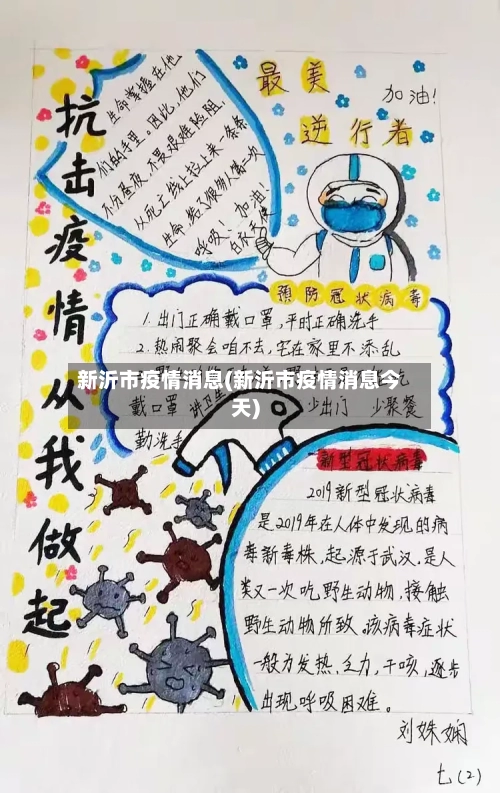 抗击疫情从我做起
生命掌握在他
们的手里。因此,他们
不分昼夜,不畏艰难险阻,
从死亡线上拉上来一条条
生命,给了很多人第二次
呼吸!加油!
白衣天使
最美
逆行者
加油!
预防冠状病毒
1.出门正确戴口罩,平时正确洗手
2.热闹聚会咱不去,宅在家里不添乱
新沂市疫情消息(新沂市疫情消息今
天)
戴口罩 讲卫生 少出门 少聚餐
勤洗手
新型冠状病毒
2019新型冠状病毒
是2019年在人体中发现的病
毒新毒株,起源于武汉,是人
类又一次吃野生动物,接触
野生动物所致。该病毒症状
一般为发热,乏力,干咳,逐步
出现呼吸困难。
刘姝娴
七(2)